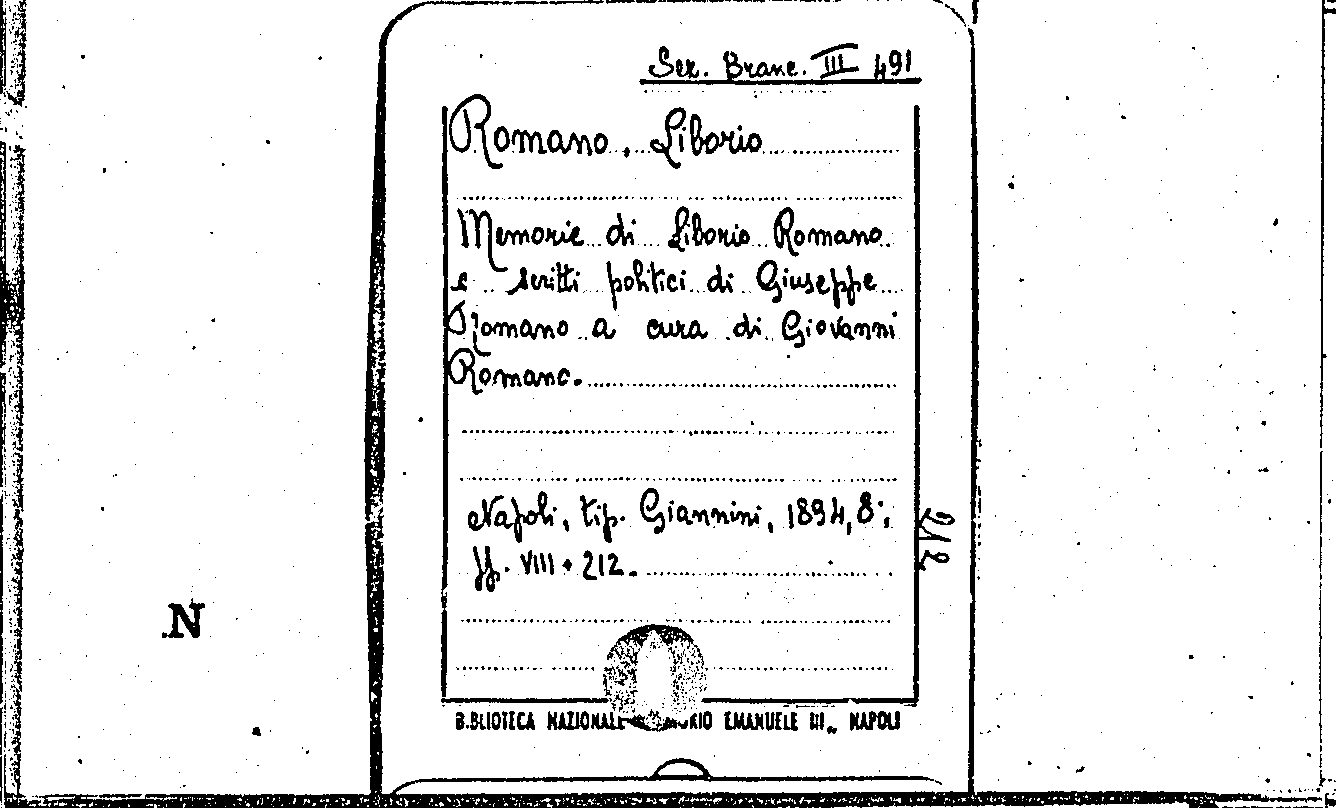 Sez. Branc. III 491
Romano, Liborio
Memorie di Liborio Romano
e scritti politici di Giuseppe
Romano a cura di Giovanni
Romano.
Napoli, tip. Giannini, 1894, 8°,
ff. VIII + 212.
212
N
B.BLIOTECA NAZIONALE EMANUELE III„ NAPOLI